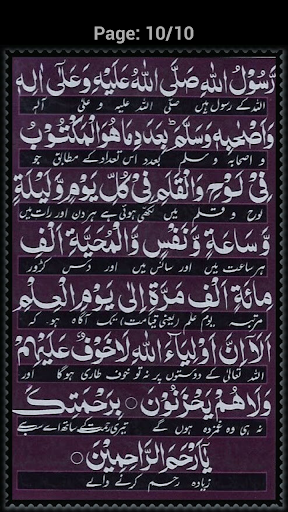 Page: 10/10
رَّسُوْلُ اللهِ صَلَّى اللهُ عَلَيْهِ وَعَلٰى اٰلِهٖ
اللہ کے رسول ہیں صلی اللہ علیہ و علی آلہ
وَاَصْحٰبِهٖ وَسَلَّمَ بِعَدَدِ مَا هُوَ الْمَكْتُوْبُ
و اصحابہ و سلم بعدد اس تعداد کے مطابق جو
فِىْ لَوْحٍ وَالْقَلَمِ فِىْ كُلِّ يَوْمٍ وَّلَيْلَةٍ
لوح و قلم میں لکھی ہوتی ہے ہر دن اور رات میں
وَّسَاعَةٍ وَّنَفْسٍ وَّالْمُحِيَّةِ اَلْفِ
ہر ساعت میں اور سانس میں اور دس کڑوڑ
مِائَةِ اَلْفِ مَرَّةٍ اِلٰى يَوْمِ الْعِلْمِ
مرتبہ یوم علم (یعنی قیامت) تک آگاہ ہو کہ
اَلَا اِنَّ اَوْلِيَاءَ اللهِ لَا خَوْفٌ عَلَيْهِمْ
اللہ تعالیٰ کے دوستوں پر نہ تو خوف طاری ہوگا اور
وَلَا هُمْ يَحْزَنُوْنَ ○ بِرَحْمَتِكَ
نہ ہی وہ غمزدہ ہوں گے تیری رحمت کے ساتھ اے سب سے
يَآ اَرْحَمَ الرَّاحِمِيْنَ ○
زیادہ رحم کرنے والے